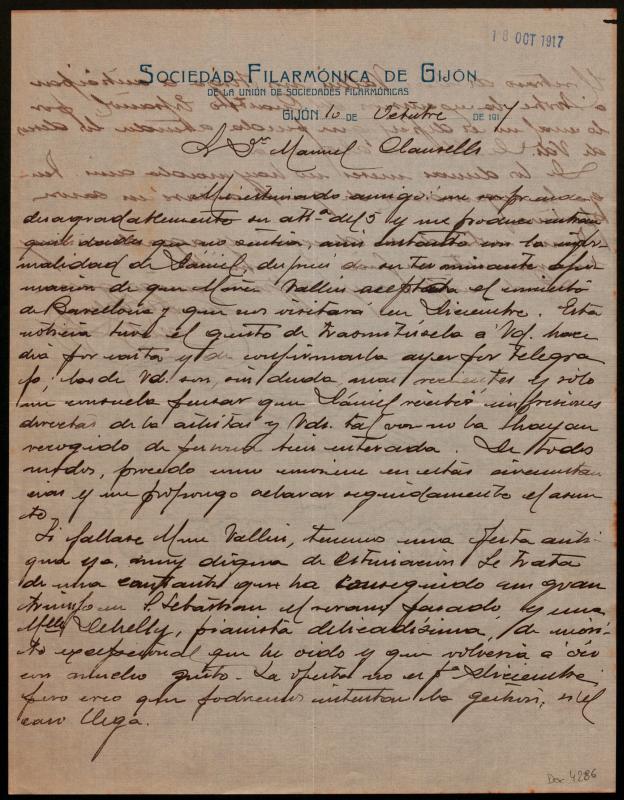 18 OCT 1917
SOCIEDAD FILARMÓNICA DE GIJÓN
DE LA UNIÓN DE SOCIEDADES FILARMÓNICAS
GIJÓN 10 DE Octubre DE 1917
A Dn Manuel Clausells
Mi estimado amigo: me sorprende
desagradablemente su atta del 5 y me produce intran
quilidades que no sentía, aun contando con la infor
malidad de Dániel, despues de su terminante afir
macion de que Mme Vallin aceptaba el concierto
de Barcelona y que nos visitará en Diciembre. Esta
noticia tuve el gusto de trasmitirsela á Vd. hace
dias por carta y de confirmarla ayer por telegra
fo; las de Vd. son, sin duda, mas recientes y sólo
me consuela pensar que Dániel recibió impresiones
directas de la artista y Vds. tal vez no la hayan
recogido de persona bien enterada. De todos
modos, procedo como conviene en estas circunstan
cias y me propongo aclarar seguidamente el asun
to.
Si fallase Mme Vallin, tenemos una oferta anti-
gua ya, muy digna de estimacion. Se trata
de una cantante que ha conseguido un gran
triunfo en S. Sebastian el verano pasado y una
Mlle, pianista delicadísima, de mérito
excepcional que he oido y que volvería á oir
con mucho gusto. La oferta no es pa Diciembre
pero creo que podremos intentar la gestion, si el
caso llega.
Doc. 4286